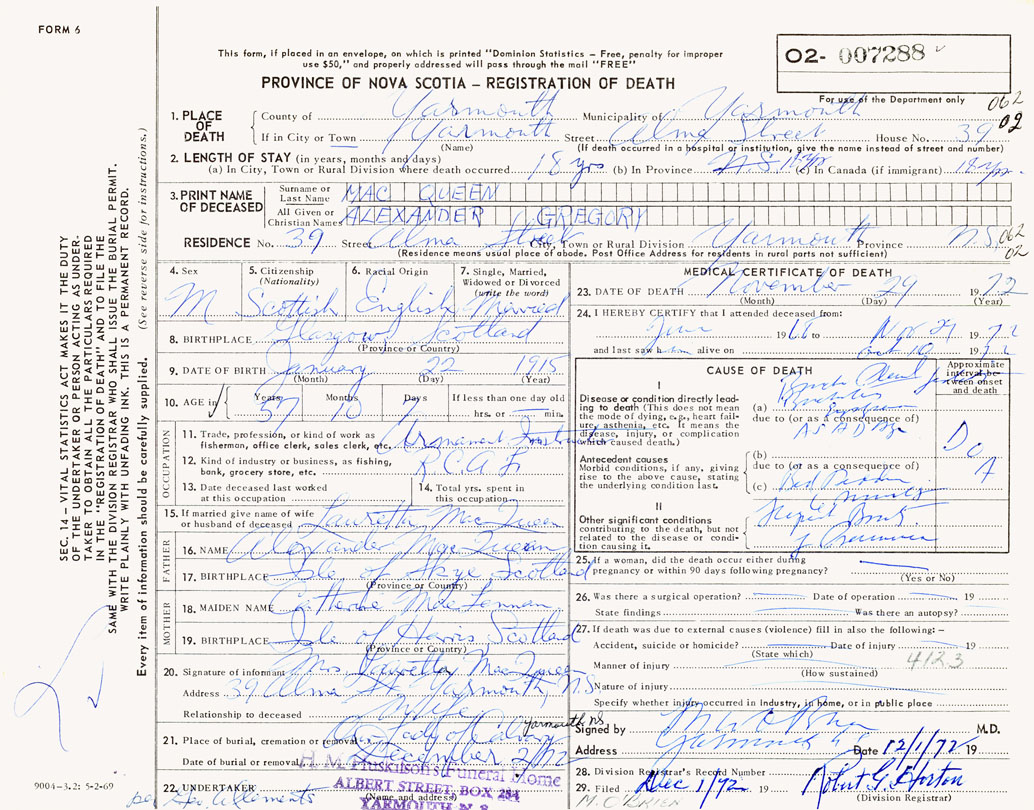 FORM 6
This form, if placed in an envelope, on which is printed "Dominion Statistics – Free, penalty for improper
use $50," and properly addressed will pass through the mail "FREE"
PROVINCE OF NOVA SCOTIA – REGISTRATION OF DEATH
02- 007288
For use of the Department only
062
02
1. PLACE OF DEATH
County of Yarmouth Municipality of Yarmouth
If in City or Town Yarmouth Street Alma Street House No. 39
(Name) (If death occurred in a hospital or institution, give the name instead of street and number)
2. LENGTH OF STAY (in years, months and days)
(a) In City, Town or Rural Division where death occurred 18 yrs (b) In Province N.S. 18 yr (c) In Canada (if immigrant) 18 yr.
3. PRINT NAME OF DECEASED
Surname or Last Name MAC QUEEN
All Given or Christian Names ALEXANDER GREGORY
RESIDENCE No. 39 Street Alma Street City, Town or Rural Division Yarmouth Province N.S.
062
02
(Residence means usual place of abode. Post Office Address for residents in rural parts not sufficient)
4. Sex M
5. Citizenship (Nationality) Scottish
6. Racial Origin English
7. Single, Married, Widowed or Divorced (write the word) Married
8. BIRTHPLACE Glasgow Scotland
(Province or Country)
9. DATE OF BIRTH January 22 1915
(Month) (Day) (Year)
10. AGE in Years 57 Months 10 Days 7 If less than one day old
hrs. or min.
OCCUPATION
11. Trade, profession, or kind of work as
fisherman, office clerk, sales clerk, etc. Armament
12. Kind of industry or business, as fishing,
bank, grocery store, etc. R.C.A.F.
13. Date deceased last worked
at this occupation
14. Total yrs. spent in
this occupation
15. If married give name of wife
or husband of deceased Lauretta MacQueen
FATHER
16. NAME Alexander MacQueen
17. BIRTHPLACE Isle of Skye, Scotland
(Province or Country)
MOTHER
18. MAIDEN NAME Catherine MacLennan
19. BIRTHPLACE Isle of Harris Scotland
(Province or Country)
20. Signature of informant Mrs. MacQueen
Address 39 Alma St. Yarmouth, N.S.
Relationship to deceased Wife
21. Place of burial, cremation or removal Our Lady of Calvary Yarmouth NS
Date of burial or removal December 2/72
22. UNDERTAKER H. M. Huskilson's Funeral Home
(Name and address)
ALBERT STREET, BOX 254
YARMOUTH N.S.
per
MEDICAL CERTIFICATE OF DEATH
23. DATE OF DEATH November 29 1972
(Month) (Day) (Year)
24. I HEREBY CERTIFY that I attended deceased from:
June 1968 to Nov 29 1972
and last saw him alive on Oct 10 1972
CAUSE OF DEATH
Approximate interval between onset and death
I
Disease or condition directly leading
to death (This does not mean
the mode of dying, e.g., heart failure,
asthenia, etc. It means the
disease, injury, or complication
which caused death.)
(a)
due to (or as a consequence of)
Antecedent causes
Morbid conditions, if any, giving
rise to the above cause, stating
the underlying condition last.
(b)
due to (or as a consequence of)
(c)
DOA
II
Other significant conditions
contributing to the death, but not
related to the disease or condition
causing it.
25. If a woman, did the death occur either during
pregnancy or within 90 days following pregnancy?
(Yes or No)
26. Was there a surgical operation? Date of operation 19
State findings Was there an autopsy?
27. If death was due to external causes (violence) fill in also the following: –
Accident, suicide or homicide? Date of injury 19
(State which)
4123
Manner of injury
(How sustained)
Nature of injury
Specify whether injury occurred in industry, in home, or in public place
Signed by M.D.
Address Yarmouth Date 12/1/72 19
28. Division Registrar's Record Number
29. Filed Dec 1/72 19 Robert G. Horton
(Division Registrar)
M. O'BRIEN
SEC. 14 – VITAL STATISTICS ACT MAKES IT THE DUTY
OF THE UNDERTAKER OR PERSON ACTING AS UNDERTAKER
TO OBTAIN ALL THE PARTICULARS REQUIRED
IN THE "REGISTRATION OF DEATH" AND TO FILE THE
SAME WITH THE DIVISION REGISTRAR WHO SHALL ISSUE THE BURIAL PERMIT.
WRITE PLAINLY WITH UNFADING INK. THIS IS A PERMANENT RECORD.
Every item of information should be carefully supplied. (See reverse side for instructions.)
9004-3.2: 5-2-69